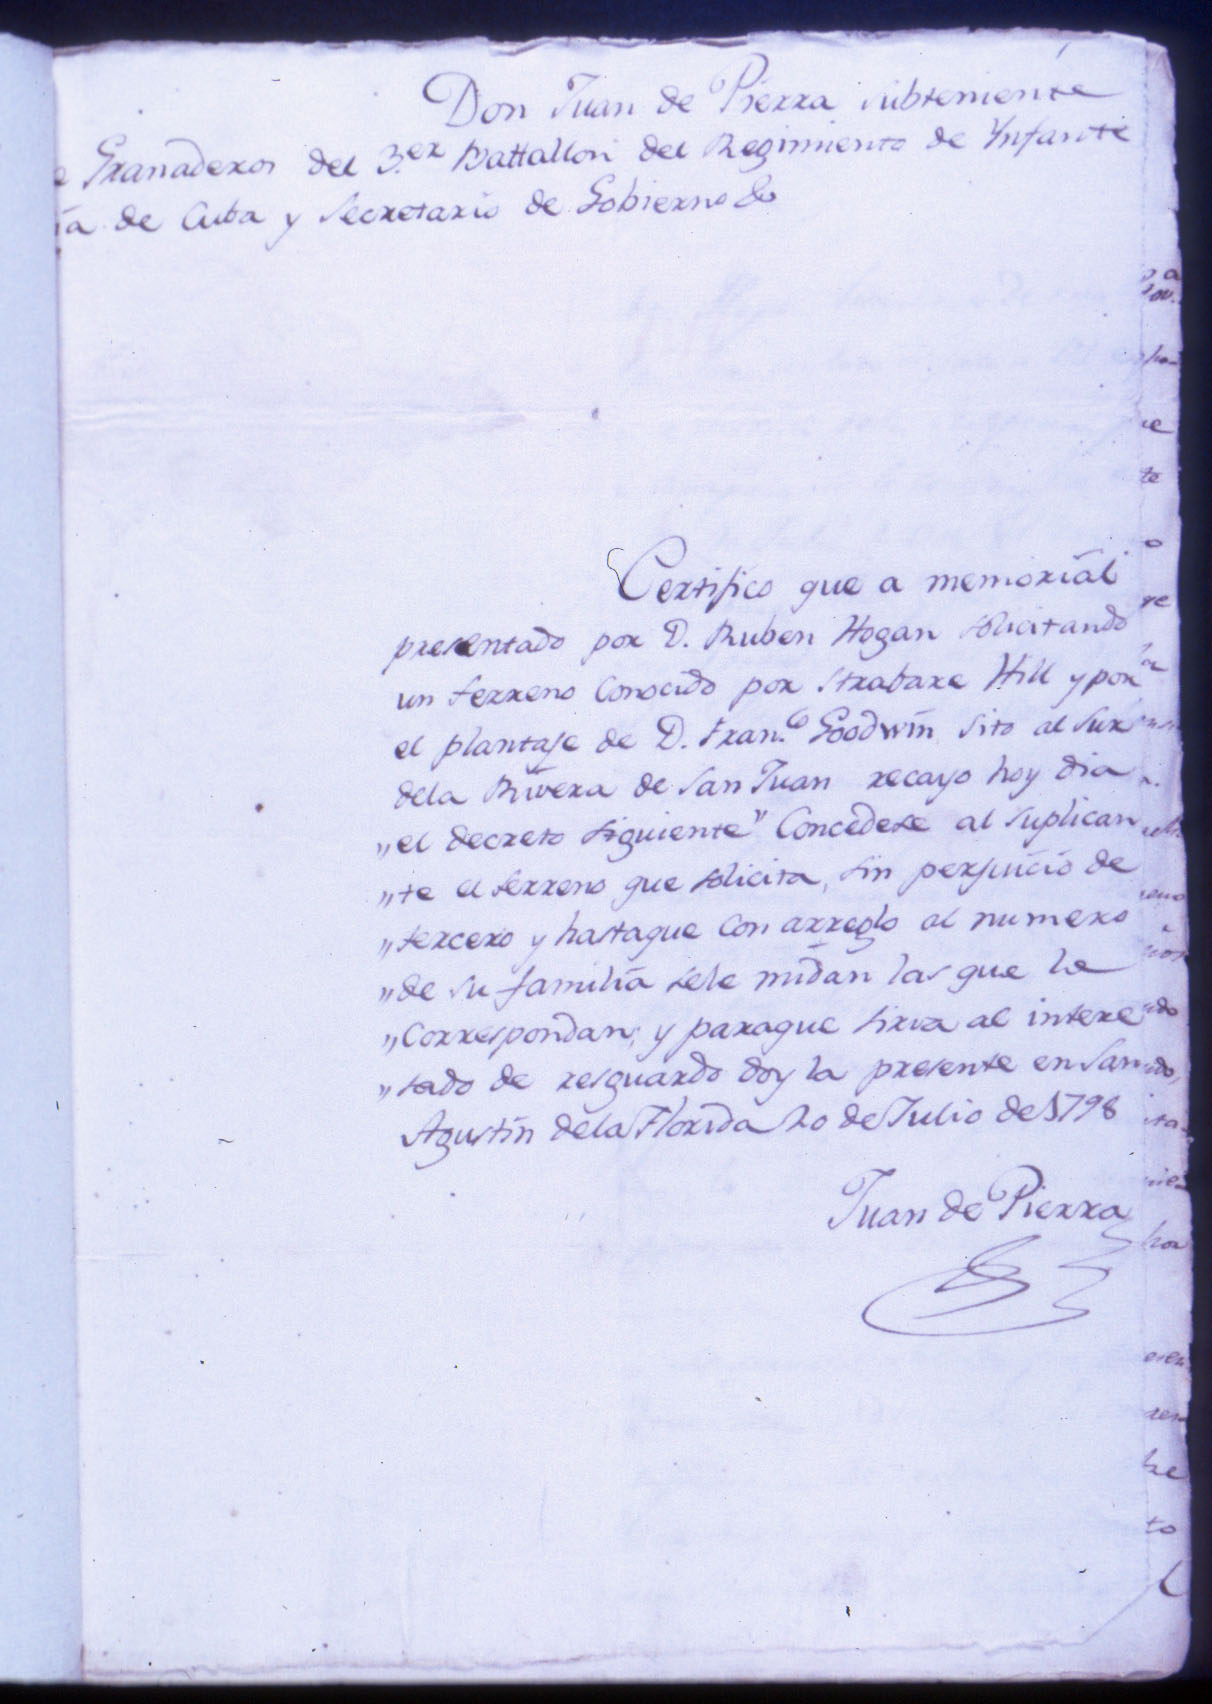 Don Juan de Pierra subteniente
e Granaderos del 3.er Battallon del Regimiento de Ynfante
ia de Cuba y Secretario de Gobierno &
Certifico que a memorial
presentado por D. Ruben Hogan solicitando
un terreno conocido por Strabare Hill y por
el plantaje de D. Fran.co Goodwin sito al Sur
dela Rivera de San Juan recayo hoy dia
„el decreto siguiente" Concedese al suplican
„te el terreno que solicita, sin perjuicio de
„tercero y hastaque con arreglo al numero
„de su familia sele midan las que le
„Correspondan; y paraque sirva al intere
„sado de resguardo doy la presente en San
Agustin dela Florida 20 de Julio de 1798
Juan de Pierra